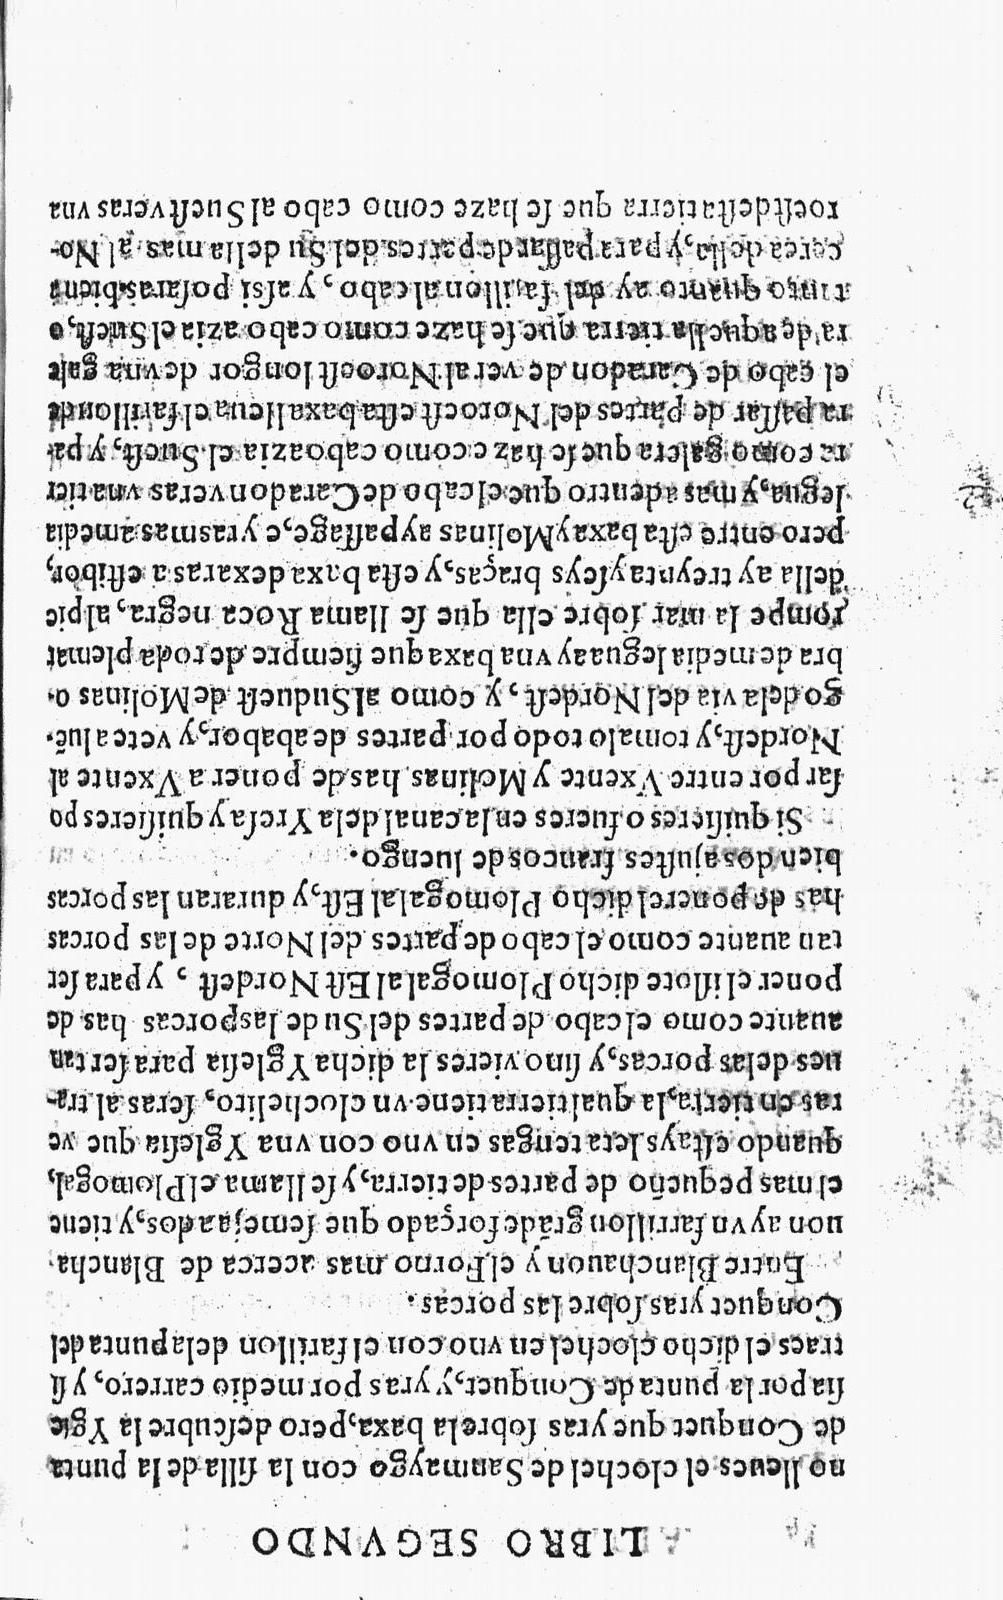 LIBRO SEGVNDO
no lleues el clochel de Sanmaygo con la filla de la punta
de Conquet que yras ſobre la baxa, pero deſcubre la Ygle
ſia por la punta de Conquet, y yras por medio carrero, y ſi
traes el dicho clochel en vno con el farillon de la punta del
Conquet yras ſobre las porcas.
Entre Blanchauon y el Forno mas acerca de Blancha
uon ay vn farrillon grãde forçado que ſemeja a dos, y tiene
el mas pequeño de partes de tierra, y ſe llama el Plomogal,
quando eſtays leta tengas en vno con vna Ygleſia que ve
ras en tierra, la qual tierra tiene vn clochelito, ſeras al tra-
ues de las porcas, y ſino vieres la dicha Ygleſia para ſer tan
auante como el cabo de partes del Su de las porcas has de
poner el iſlote dicho Plomogal al Eſt Nordeſt, y para ſer
tan auante como el cabo de partes del Norte de las porcas
has de poner el dicho Plomogal al Eſt, y duraran las porcas
bien dos ajuſtes francos de luengo.
Si quiſieres o fueres en la canal de la Yrcſa y quiſieres po
ſar por entre Vxente y Molinas has de poner a Vxente al
Nordeſt, y tomalo todo por partes de ababor, y vete a luẽ-
go de la via del Nordeſt, y como al Sudueſt de Molinas o-
bra de media legua ay vna baxa que ſiempre de toda plemar
rompe la mar ſobre ella que ſe llama Roca negra, al pie
della ay treynta y ſeys braças, y eſta baxa dexaras a eſtibor,
pero entre eſta baxa y Molinas ay paſſage, e yras mas a media
legua, y mas adentro que el cabo de Caradon veras vna tier
ra como galera que ſe haze como cabo azia el Sueſt, y pa-
ra paſſar de partes del Noroeſt eſta baxa lleua el farillon de
el cabo de Caradon de veral Noroeſt longor de vna gale
ra de aquella tierra que ſe haze como cabo azia el Sueſt, o
tanto quanto ay del farillon al cabo, y aſsi poſaras bien a
cerca della, y para paſſar de partes del Su della mas al No-
roeſt deſta tierra que ſe haze como cabo al Sueſt veras vna